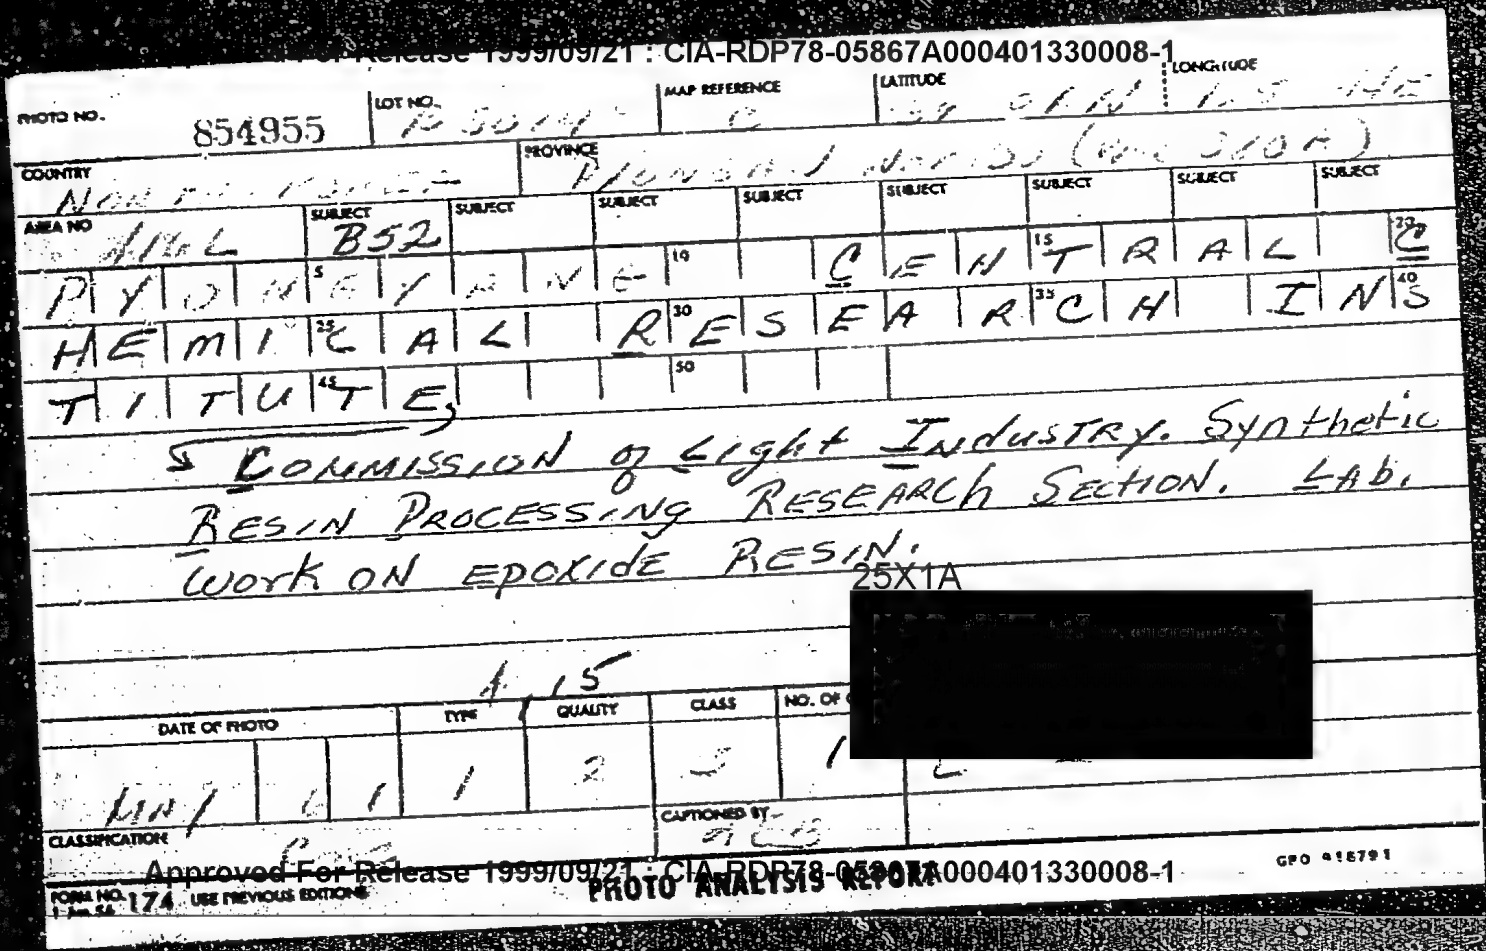 For Release 1999/09/21 : CIA-RDP78-05867A000401330008-1
PHOTO NO. 854955 LOT NO. MAP REFERENCE C LATITUDE 39 01 N LONGITUDE
COUNTRY NORTH KOREA PROVINCE
AREA NO SUBJECT B52 SUBJECT SUBJECT SUBJECT SUBJECT SUBJECT SUBJECT SUBJECT
PYONGYANG 5 10 CENTRAL 15 C 20
HEMICAL 25 RESEARCH 30 35 INS 40
TITUTE, 45 50
COMMISSION of Light INdUSTRY. Synthetic
RESIN PROCESSING RESEARCh SECTION. LAB.
WORK ON EPOXIdE RESIN.
25X1A
1,15
DATE OF PHOTO TYPE QUALITY CLASS NO. OF
61 1 2 1
CLASSIFICATION CAPTIONED BY
Approved For Release 1999/09/21 : CIA-RDP78-05867A000401330008-1
GPO 918791
FORM NO. 174 USE PREVIOUS EDITIONS PHOTO ANALYSIS REPORT
1 Jun 56